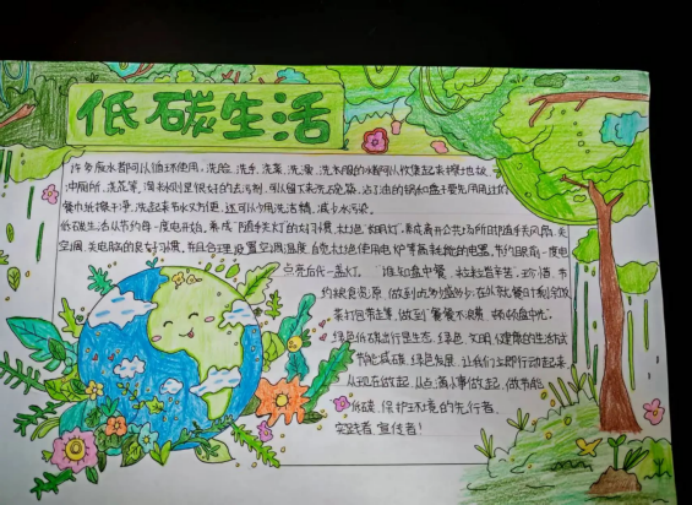 低碳生活
许多废水都可以循环使用,洗脸、洗手、洗菜、洗澡、洗衣服的水都可以收集起来擦地板、
冲厕所、洗花等,淘米水则是很好的去污剂,可以留下来洗碗筷,沾了油的锅和盘子要先用用过的
餐巾纸擦干净,洗起来节水又方便,还可以少用洗洁精,减少水污染。
低碳生活从节约每一度电开始。养成"随手关灯"的好习惯,杜绝"长明灯",养成离开公共场所时随手关风扇、关
空调、关电脑的良好习惯,并且合理设置空调温度,自觉杜绝使用电炉等高耗能的电器,节约眼前一度电
点亮后代一盏灯。"谁知盘中餐,粒粒皆辛苦",珍惜、节
约粮食资源,做到吃多少盛多少;在外就餐时剩余饭
菜打包带走等,做到"餐餐不浪费,顿顿盘中光"。
绿色低碳出行显生态,绿色、文明、健康的生活方式
节能减碳,绿色发展,让我们立即行动起来,
从现在做起,从点滴小事做起,做节能
低碳、保护环境的先行者、
实践者、宣传者!